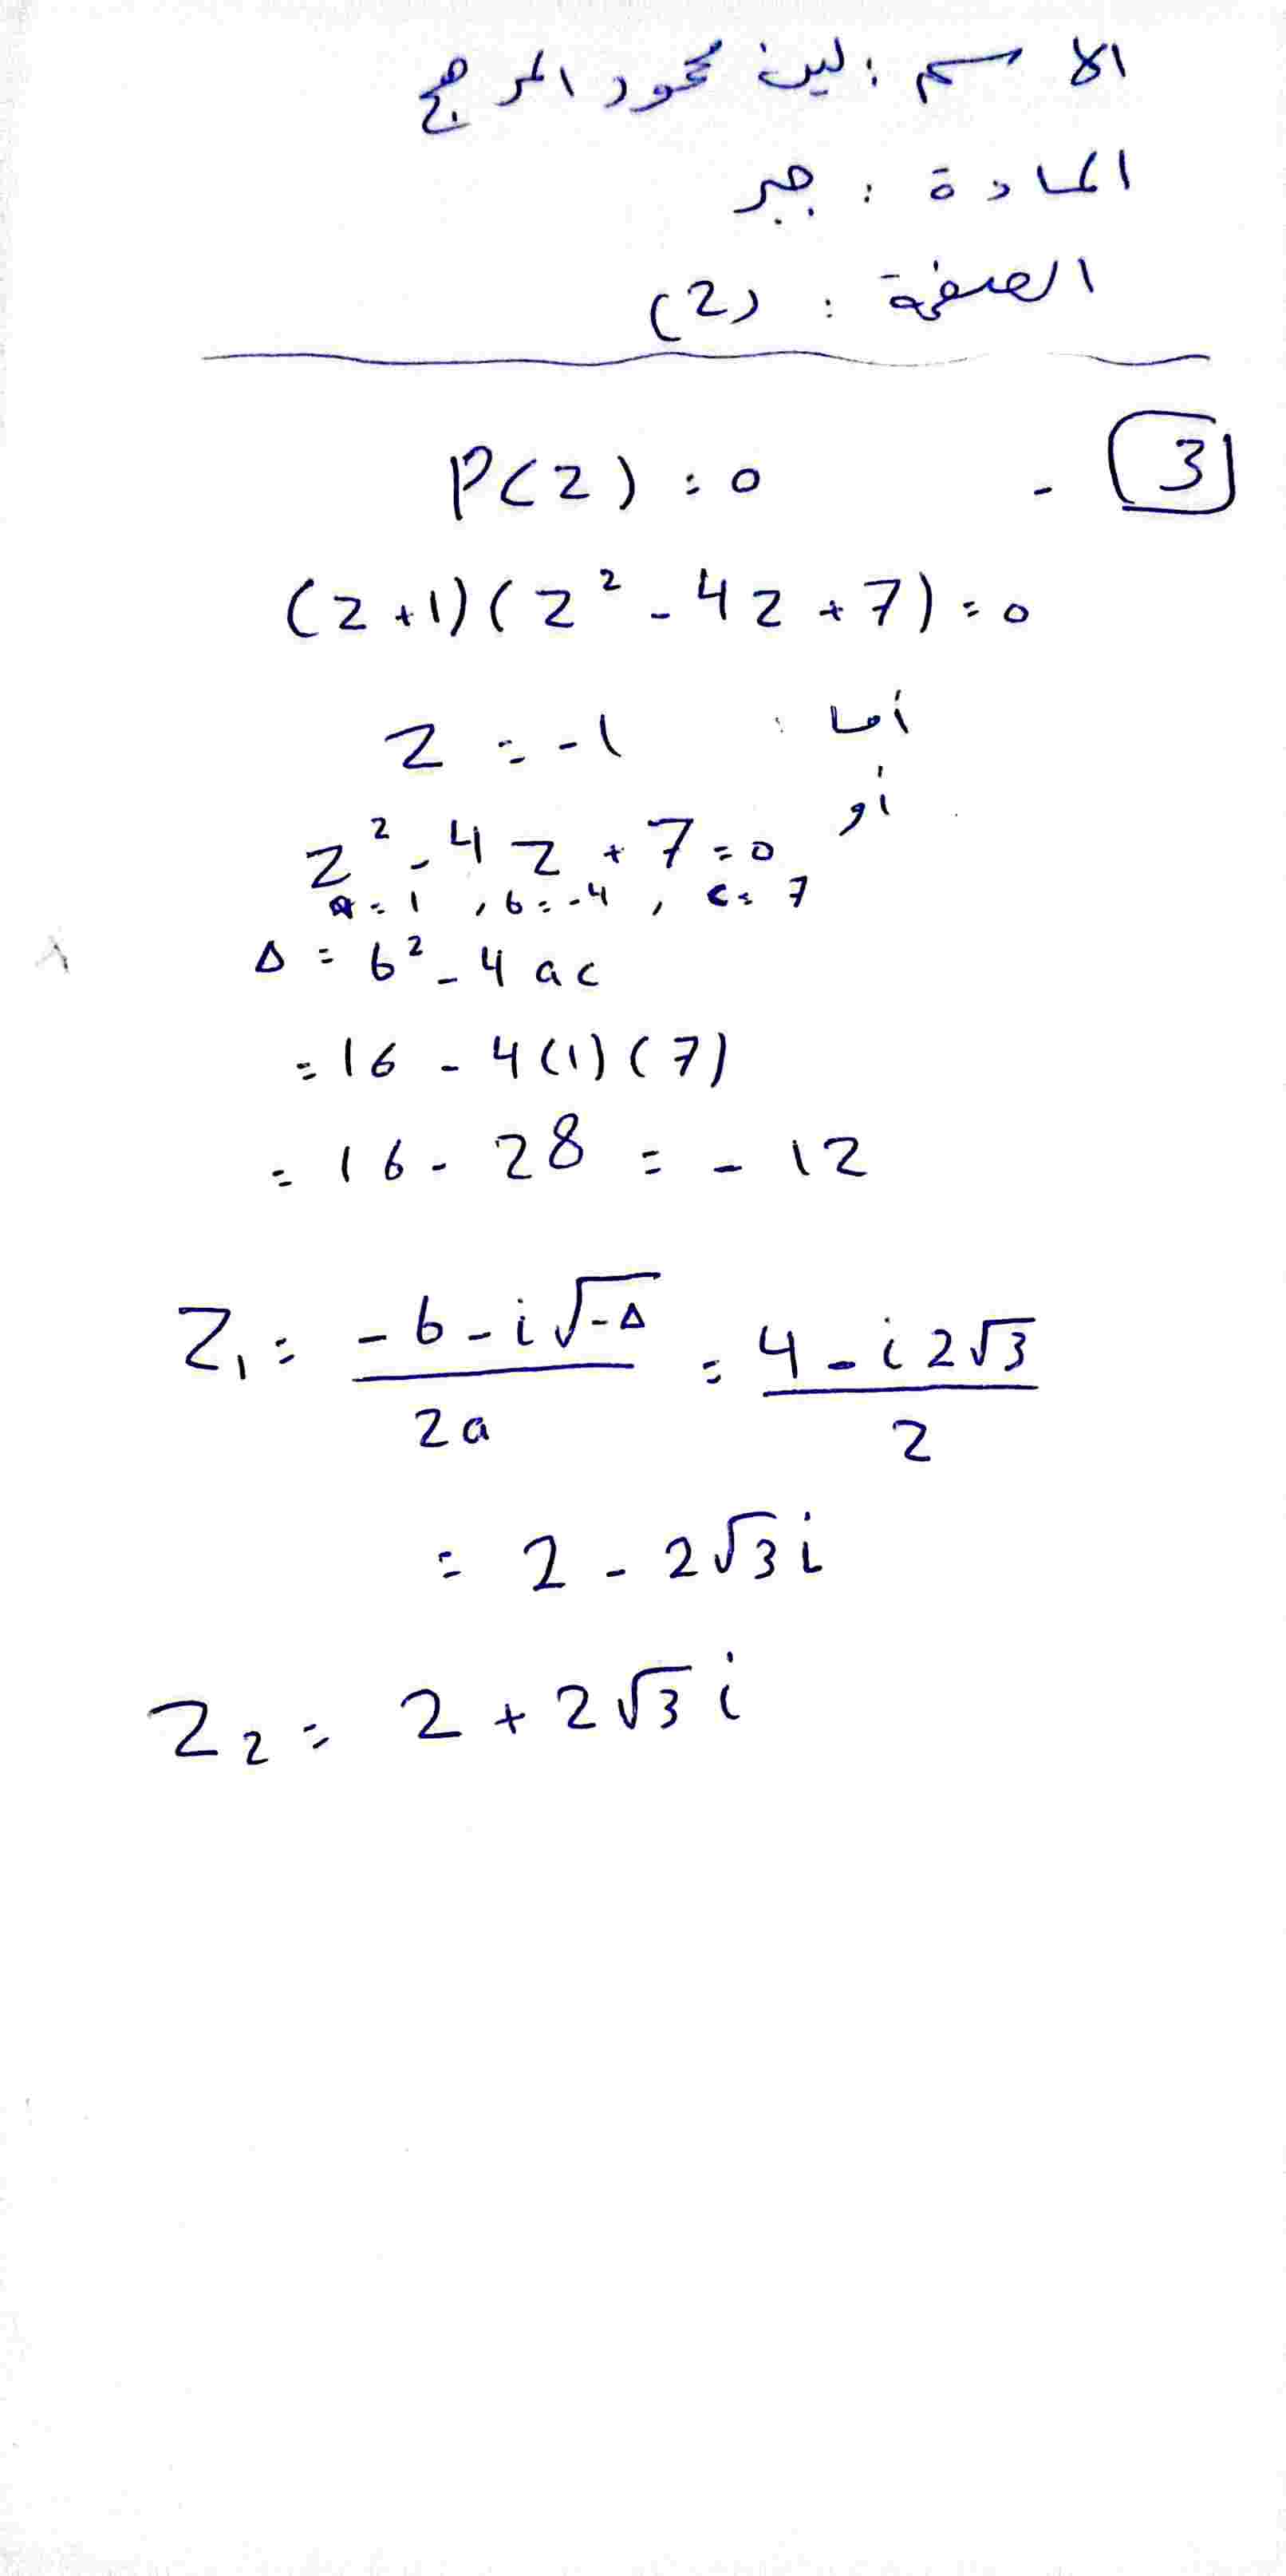 الاسم : لين محمود المرجح
المادة : جبر
الصفحة : (2)
3 -
P(z) = 0
(z+1)(z² - 4z + 7) = 0
أما : z = -1
أو
z² - 4z + 7 = 0
a = 1 , b = -4 , c = 7
Δ = b² - 4ac
= 16 - 4(1)(7)
= 16 - 28 = -12
Z₁ = (-b - i√-Δ) / 2a = (4 - i2√3) / 2
= 2 - 2√3 i
Z₂ = 2 + 2√3 i